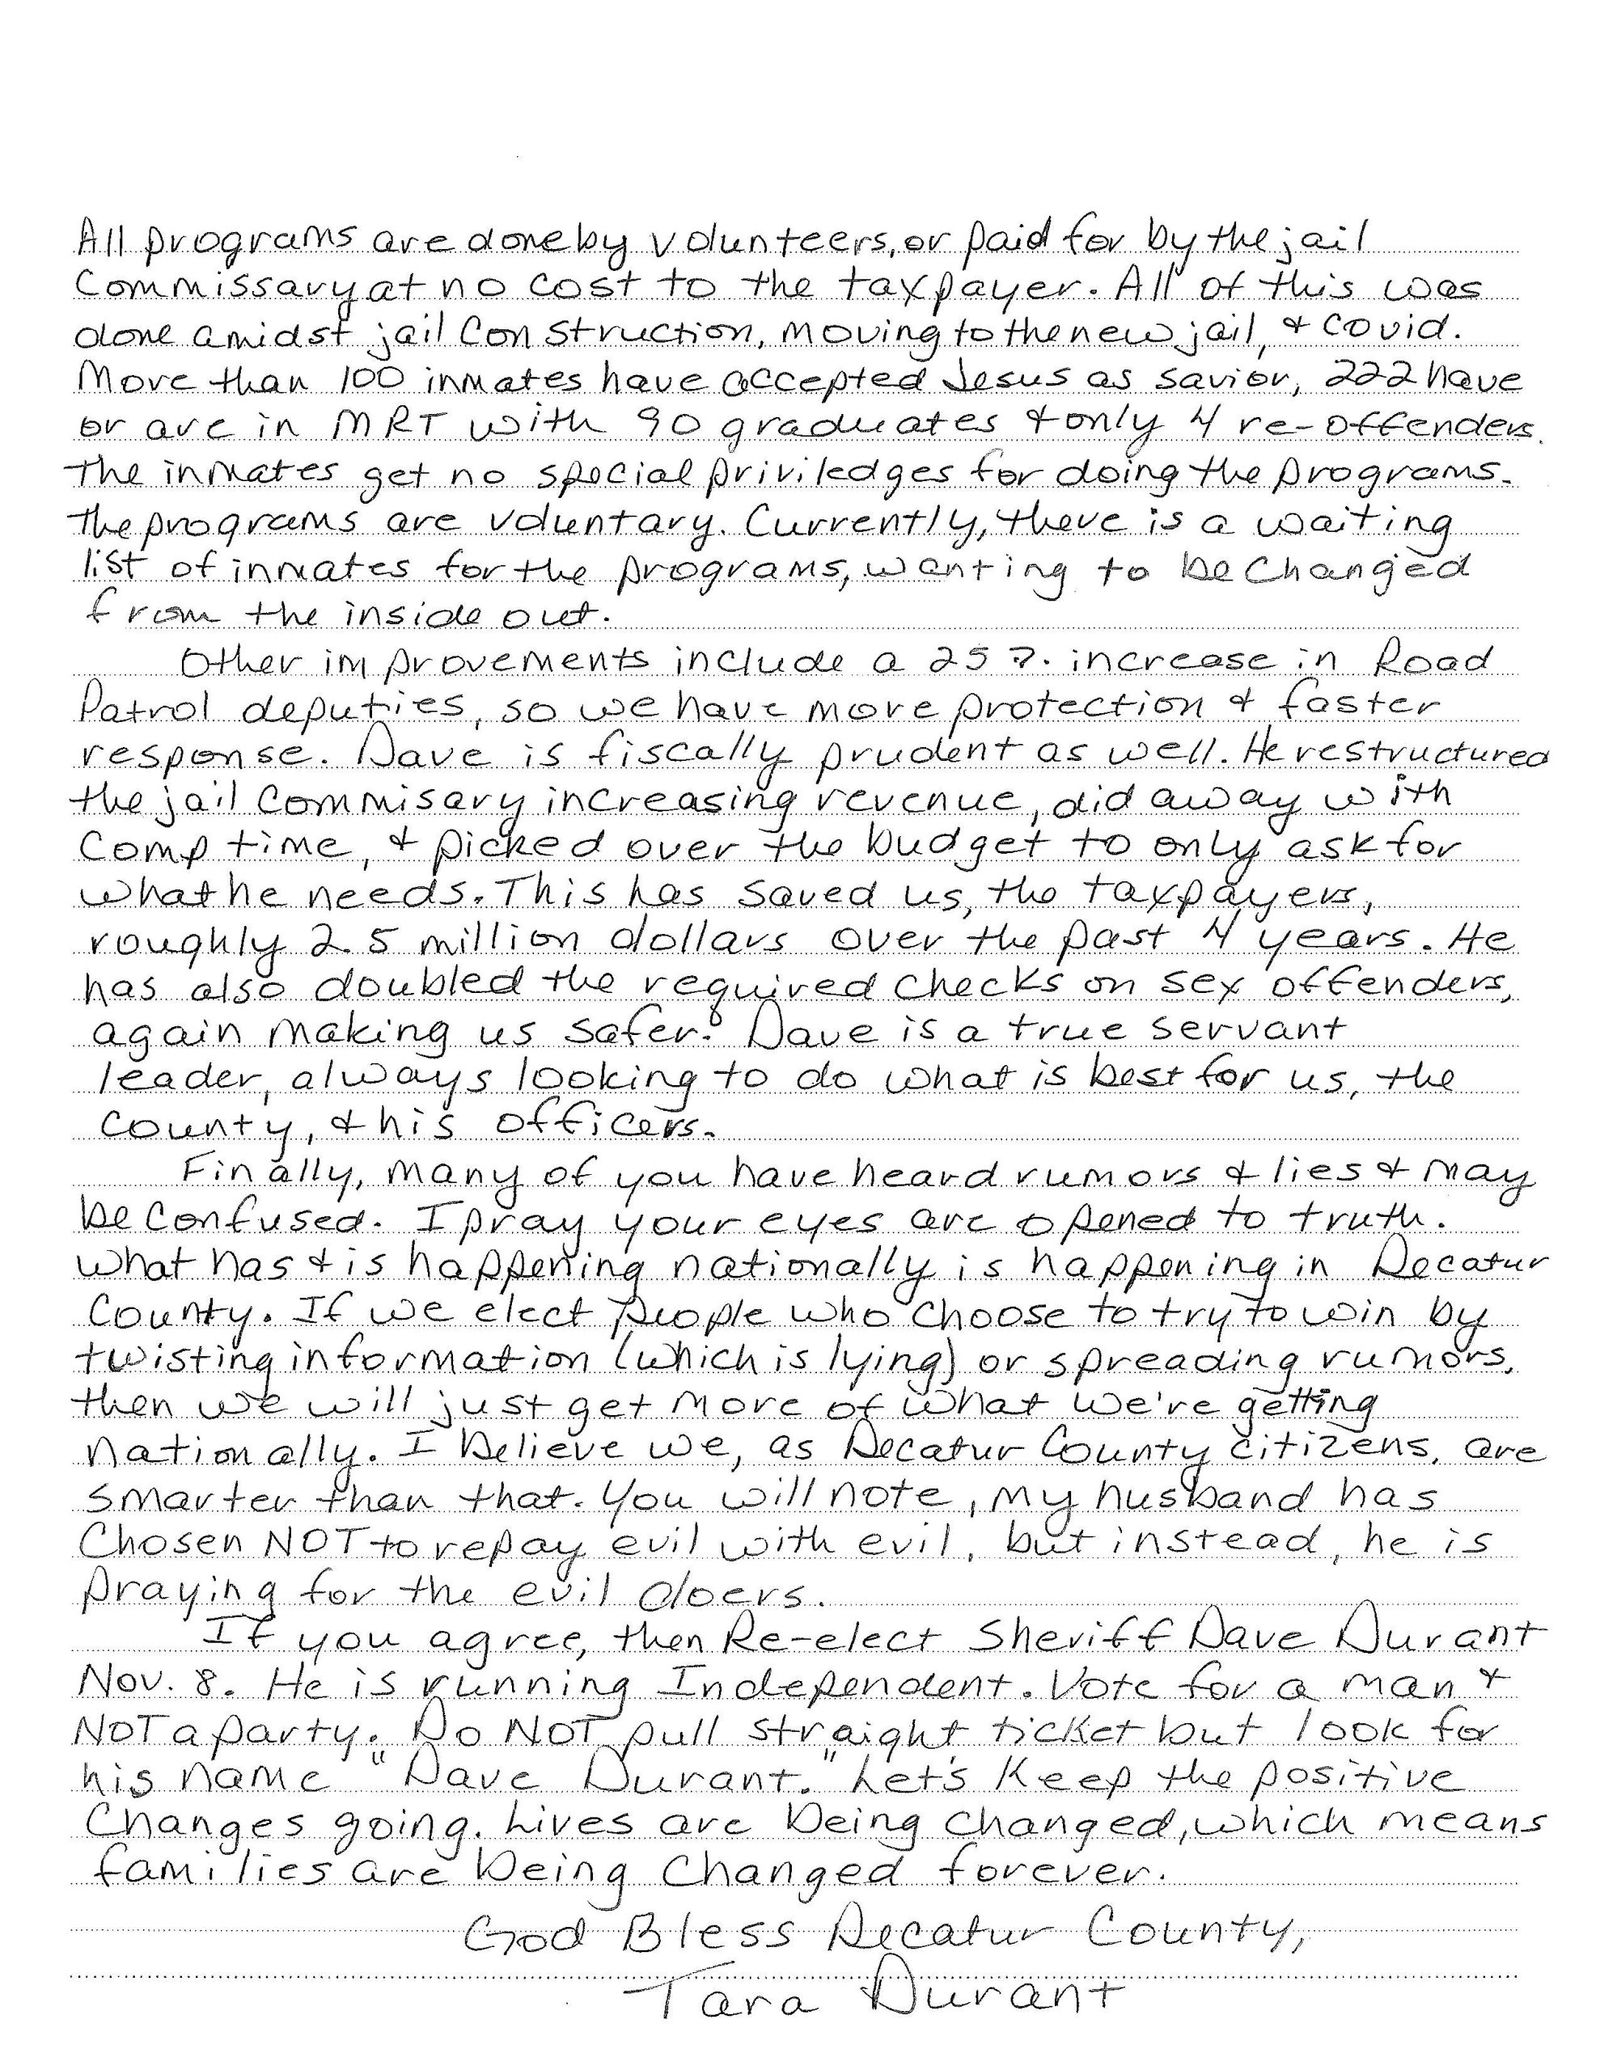 All programs are done by volunteers, or paid for by the jail
Commissary at no cost to the taxpayer. All of this was
done amidst jail construction, moving to the new jail, & covid.
More than 100 inmates have accepted Jesus as savior, 222 have
or are in MRT with 90 graduates & only 4 re-offenders.
The inmates get no special priviledges for doing the programs.
The programs are voluntary. Currently, there is a waiting
list of inmates for the programs, wanting to be changed
from the inside out.
Other improvements include a 25%. increase in Road
Patrol deputies, so we have more protection & faster
response. Dave is fiscally prudent as well. He restructured
the jail commisary increasing revenue, did away with
comp time, & picked over the budget to only ask for
what he needs. This has saved us, the taxpayers,
roughly 2.5 million dollars over the past 4 years. He
has also doubled the required checks on sex offenders,
again making us safer. Dave is a true servant
leader, always looking to do what is best for us, the
county, & his officers.
Finally, many of you have heard rumors & lies & may
be confused. I pray your eyes are opened to truth.
What has & is happening nationally is happening in Decatur
County. If we elect people who choose to try to win by
twisting information (which is lying) or spreading rumors,
then we will just get more of what we're getting
nationally. I believe we, as Decatur County citizens, are
smarter than that. You will note, my husband has
chosen NOT to repay evil with evil, but instead, he is
praying for the evil doers.
If you agree, then Re-elect Sheriff Dave Durant
Nov. 8. He is running Independent. Vote for a man &
NOT a party. Do NOT pull straight ticket but look for
his name "Dave Durant." Let's keep the positive
changes going. Lives are being changed, which means
families are being changed forever.
God Bless Decatur County,
Tara Durant